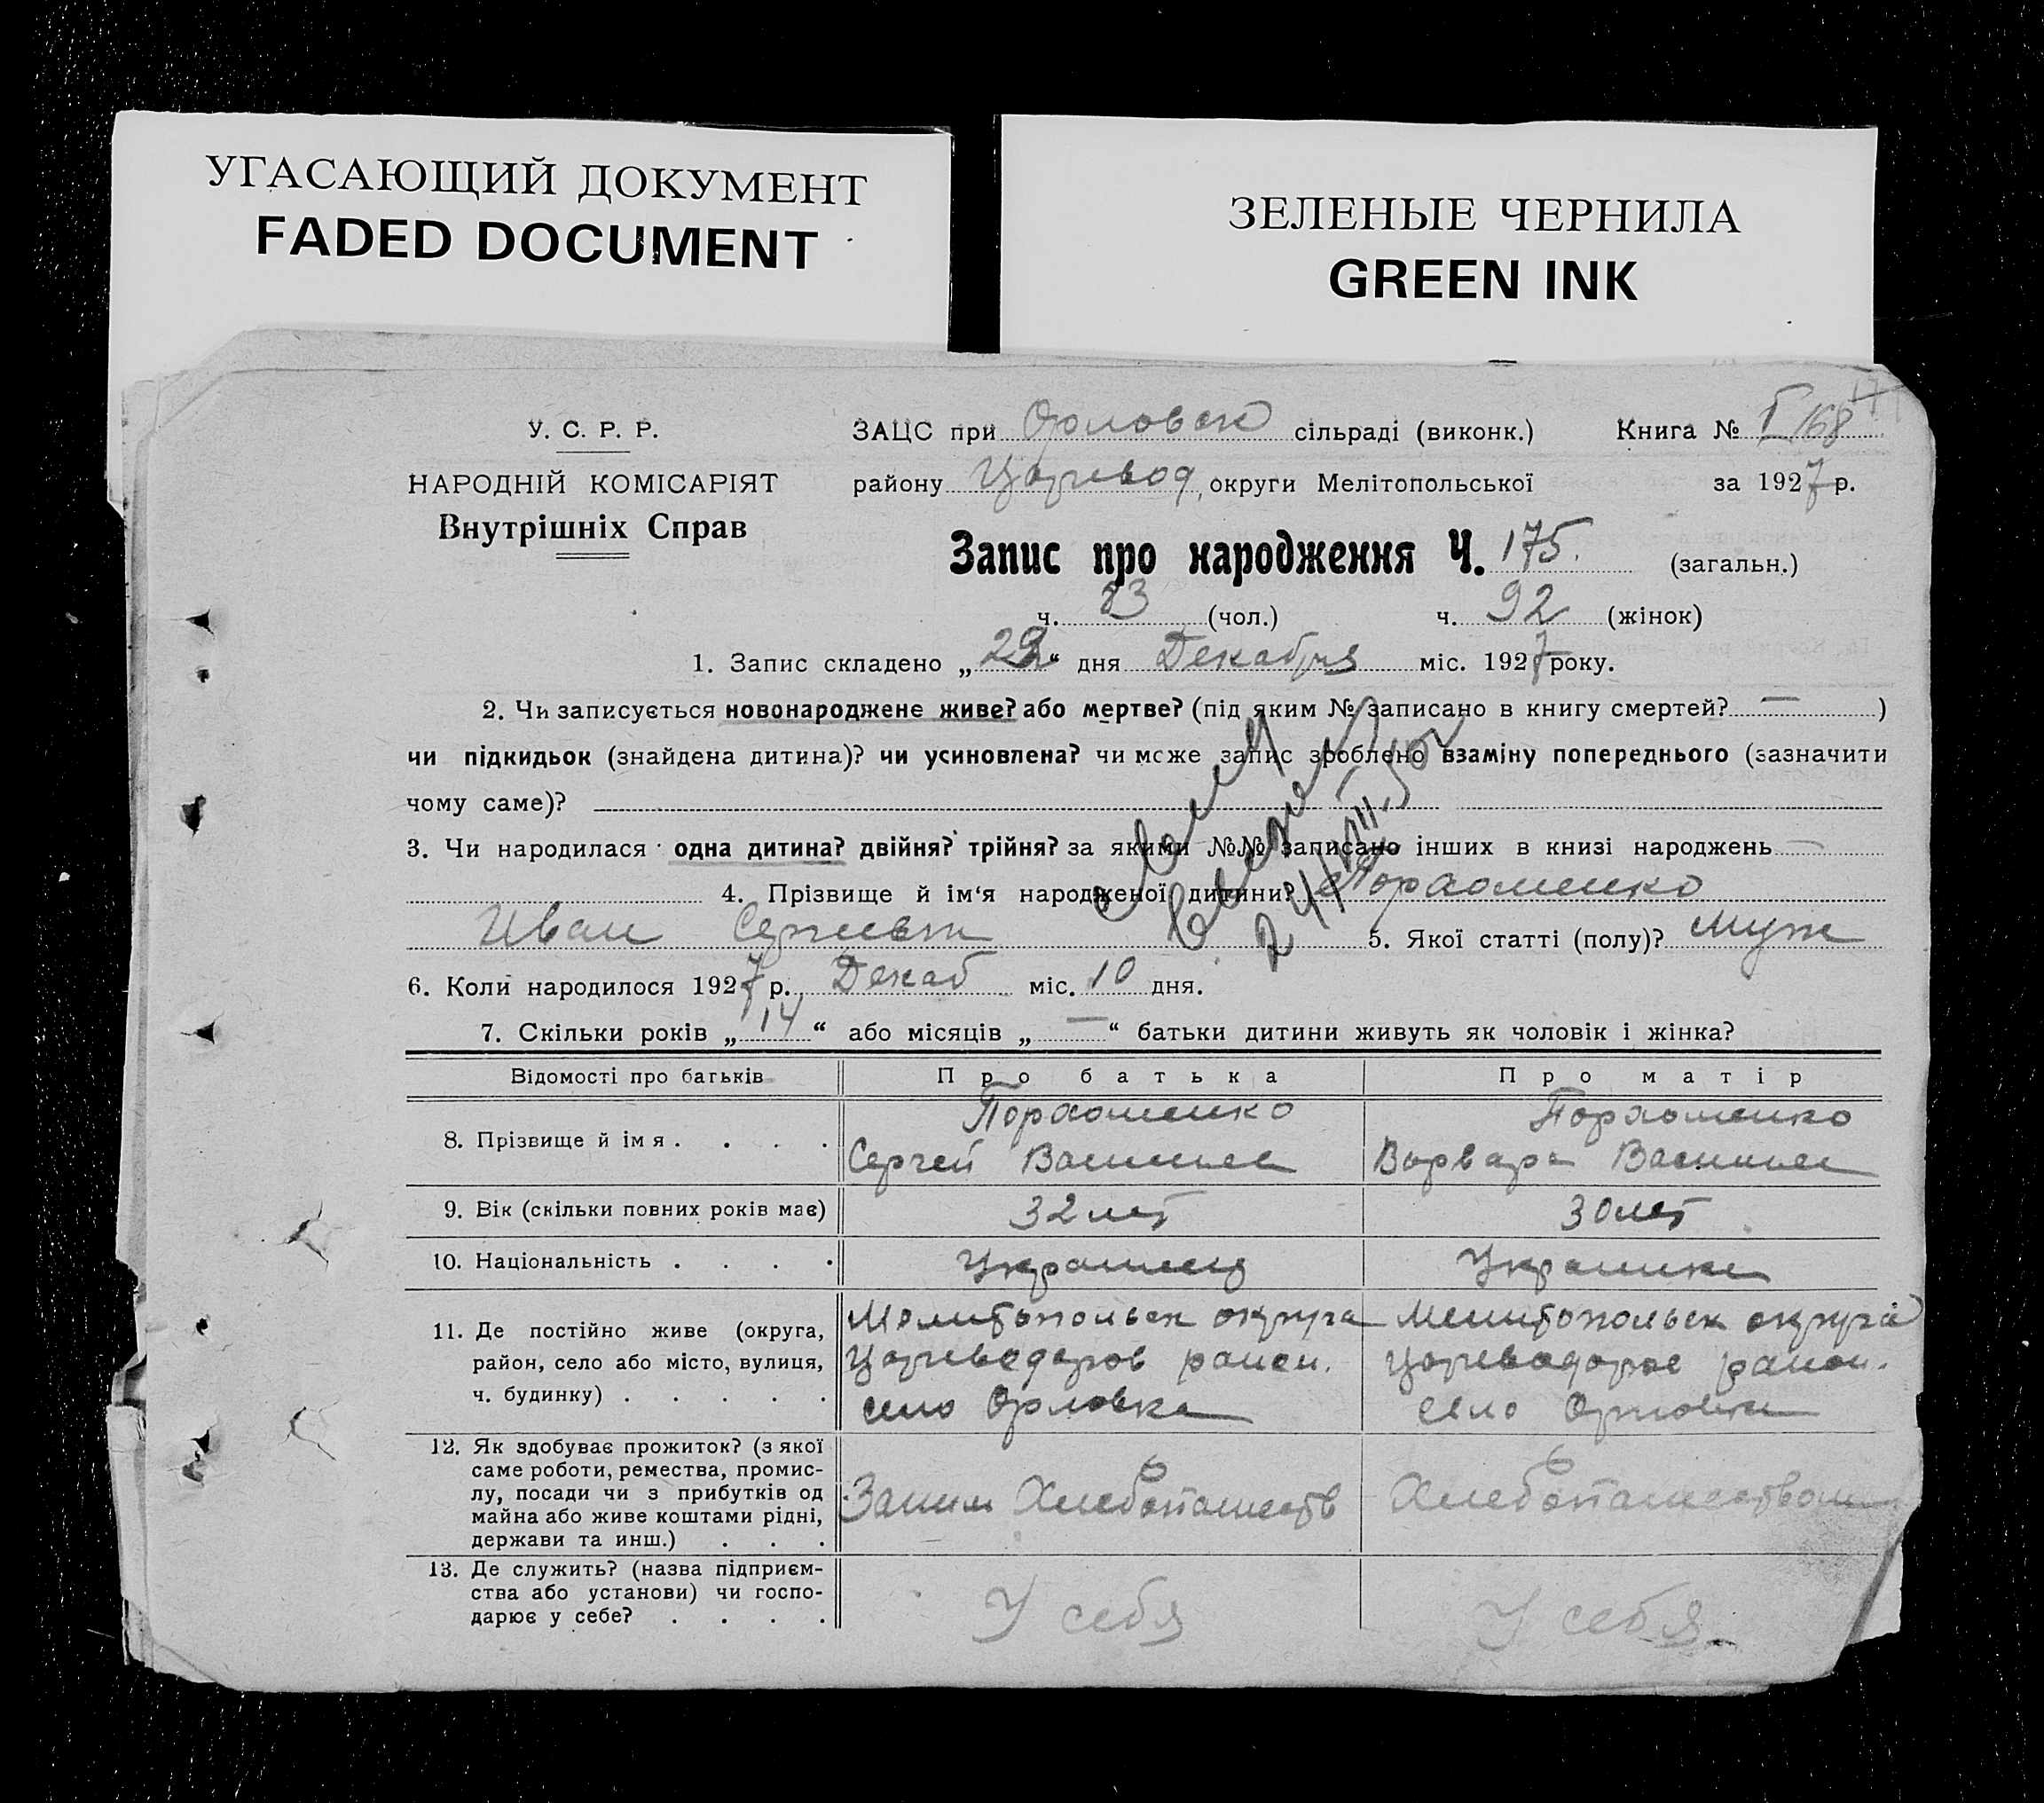 УГАСАЮЩИЙ ДОКУМЕНТ
FADED DOCUMENT
ЗЕЛЕНЫЕ ЧЕРНИЛА
GREEN INK
У. С. Р. Р.
НАРОДНІЙ КОМІСАРІЯТ
Внутрішніх Справ
ЗАЦС при Орловск сільраді (виконк.) Книга № 168
району Царевод, округи Мелітопольської за 1927 р.
Запис про народження Ч. 175. (загальн.)
ч. 83 (чол.) ч. 92 (жінок)
1. Запис складено „ “ дня Декабря міс. 1927 року.
2. Чи записується новонароджене живе? або мертве? (під яким № записано в книгу смертей? — )
чи підкидьок (знайдена дитина)? чи усиновлена? чи може запис зроблено взаміну попереднього (зазначити
чому саме)?
3. Чи народилася одна дитина? двійня? трійня? за якими №№ записано інших в книзі народжень —
4. Прізвище й ім‘я народженої дитини? Пархоменко
Иван Сергеев 5. Якої статті (полу)? Муж
6. Коли народилося 1927 р. Декаб міс. 10 дня.
7. Скільки років „ 14 “ або місяців „ — “ батьки дитини живуть як чоловік і жінка?
Відомості про батьків Про батька Про матір
8. Прізвище й імя . . . .
Пархоменко
Сергей Васильев
Пархоменко
Варвара Васильев
9. Вік (скільки повних років має) 32 лет 30 лет
10. Національність . . . . Украинец Украинка
11. Де постійно живе (округа,
район, село або місто, вулиця,
ч. будинку) . . . . .
Мелитопольск округа
Цареводаров район.
село Орловка
Мелитопольск округа
Цареводаров район.
село Орловка
12. Як здобуває прожиток? (з якої
саме роботи, ремества, промис-
лу, посади чи з прибутків од
майна або живе коштами рідні,
держави та инш.) . . .
Заним Хлебопашеств
Хлебопашеством
13. Де служить? (назва підприєм-
ства або установи) чи госпо-
дарює у себе? . . . .
У себя
У себя